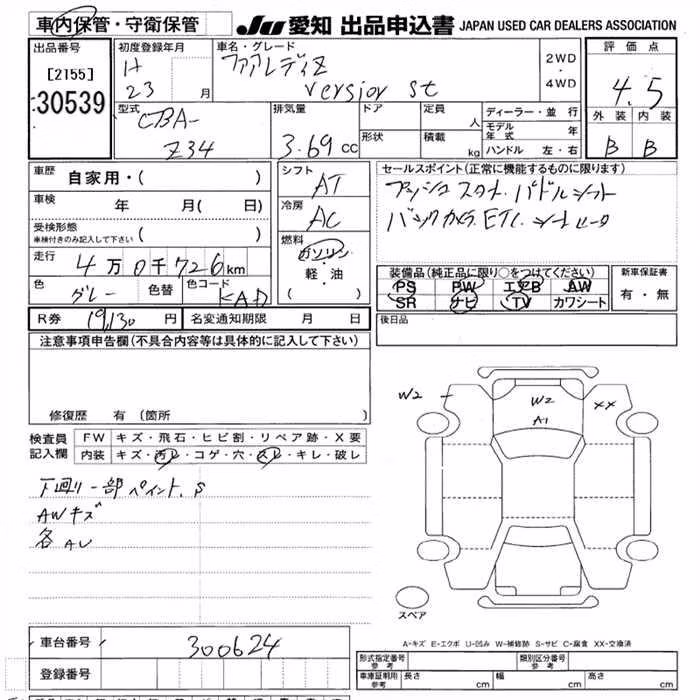 車内保管・守衛保管
JU 愛知 出品申込書 JAPAN USED CAR DEALERS ASSOCIATION
出品番号
[2155]
30539
初度登録年月
H
23 月
車名・グレード
フェアレディZ
Version St
2WD
・
4WD
評価点
4.5
外装 内装
B B
型式
CBA-
Z34
排気量
3.69 cc
ドア
形状
定員
人
積載
kg
ディーラー・並行
モデル年式 年
ハンドル 左・右
車歴
自家用・( )
車検 年 月( 日)
受検形態
車検付きのみ記入して下さい ( )
走行 4万0千726km
色
グレー
色替
色コード
KAD
シフト
AT
冷房
AC
燃料
ガソリン
・
軽・油
( )
セールスポイント(正常に機能するものに限ります)
プッシュスタート.パドルシフト
バックカメラ.ETC.シートヒーター
装備品(純正品に限り○をつけてください)
PS PW エアB AW
SR ナビ TV カワシート
新車保証書
有・無
後日品
R券 19,130円
名変通知期限 月 日
注意事項申告欄(不具合内容等は具体的に記入して下さい)
修復歴 有 (箇所 )
検査員
記入欄
FW キズ・飛石・ヒビ割・リペア跡・X要
内装 キズ・汚レ・コゲ・穴・スレ・キレ・破レ
下回り一部ペイント.S
AWキズ
各AU
W2
W2
A1
XX
スペア
A-キズ E-エクボ U-凹み W-補修跡 S-サビ C-腐食 XX-交換済
車台番号 300624
登録番号
形式指定番号
参考
類別区分番号
参考
車庫証明用
参考
長さ cm 幅 cm 高さ cm